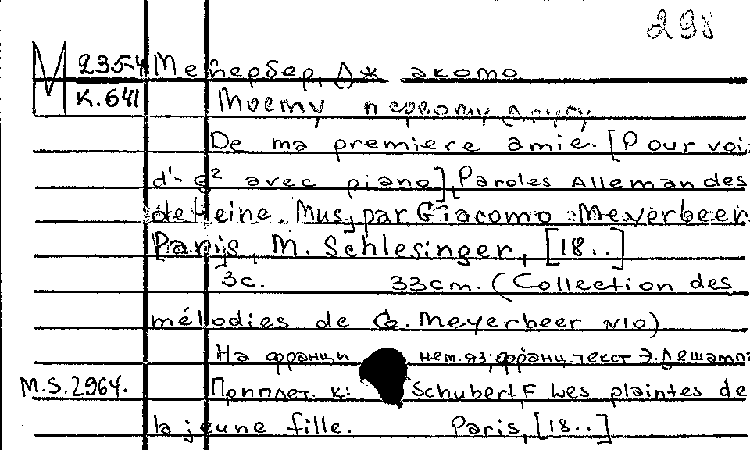 298
M 2354 Мейербер, Дж акомо
К.641 Моему первому другу
De ma premiere amie. [Pour voi
d'- g² avec piano], Paroles Allemandes
de Heine. Mus, par Giacomo Meyerbeer
Paris, M. Schlesinger, [18..]
3с. 33cm. (Collection des
mélodies de G. Meyerbeer N10)
На франц и нем.яз, франц. текст Э. Дешамп
M.S.2964. Приплет. к: Schubert, F Les plaintes de
la jeune fille. Paris, [18..]